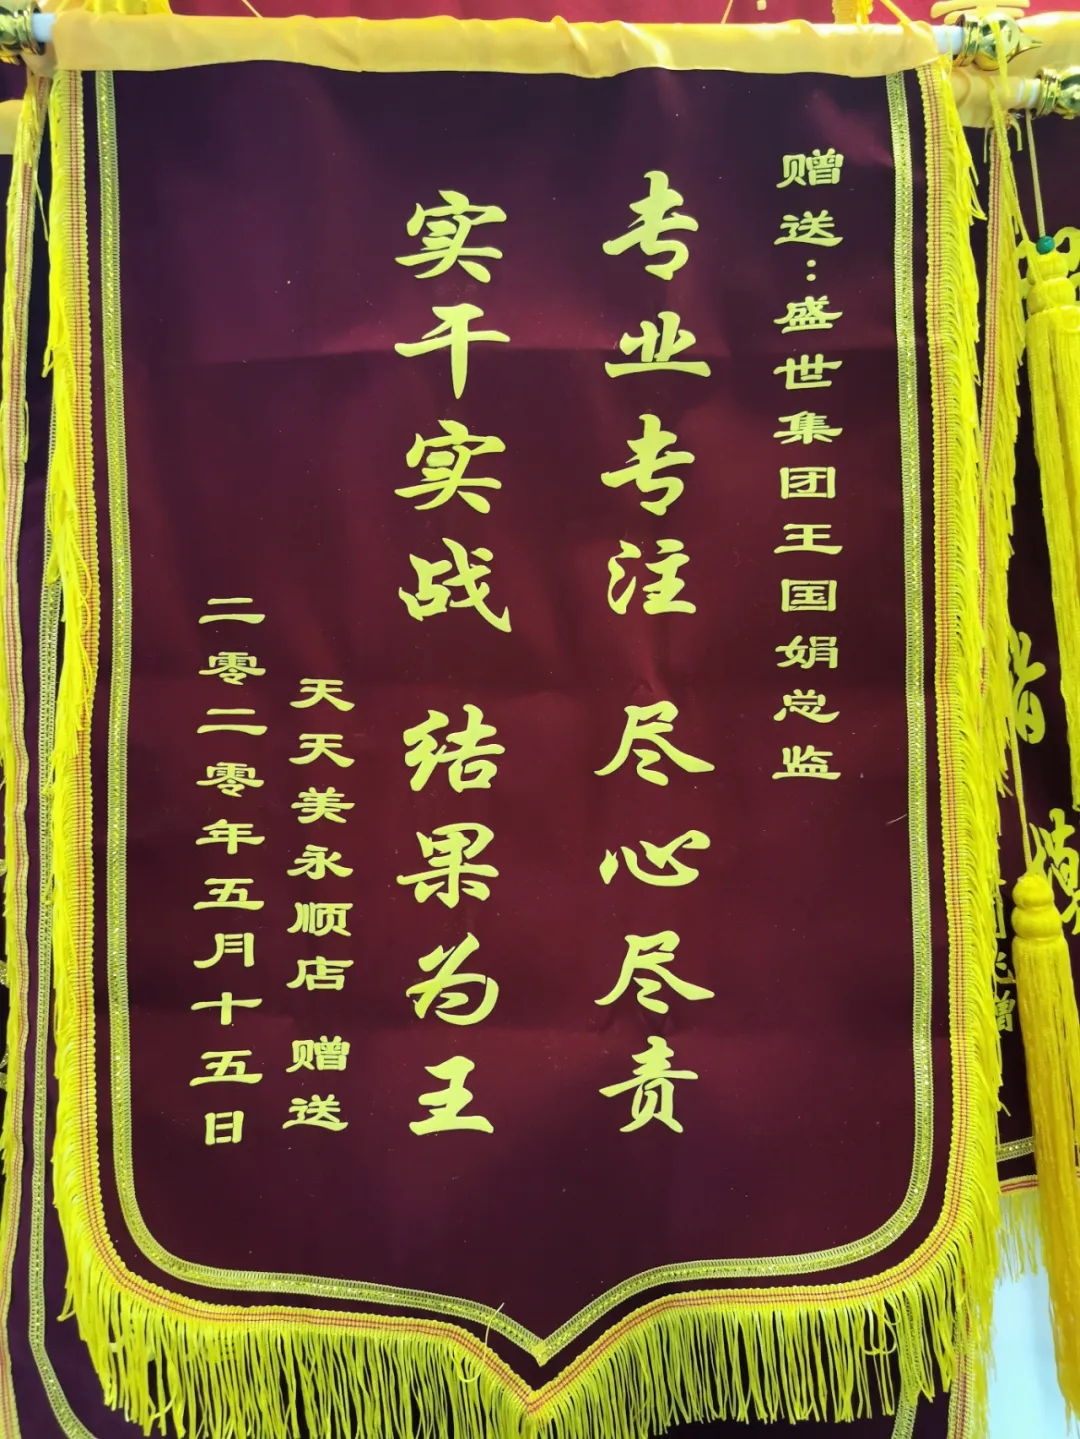 赠送:盛世集团王国娟总监
专业专注 尽心尽责
实干实战 结果为王
天天美永顺店 赠送
二零二零年五月十五日